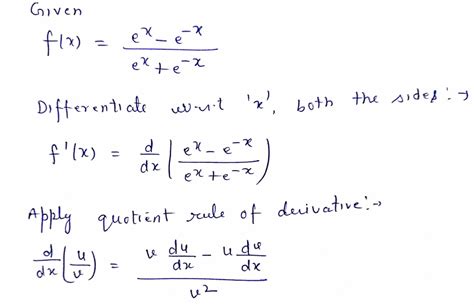 Given
f(x) = (e^x - e^-x) / (e^x + e^-x)
Differentiate w.r.t 'x', both the sides:→
f'(x) = d/dx ( (e^x - e^-x) / (e^x + e^-x) )
Apply quotient rule of derivative:→
d/dx (u/v) = (v du/dx - u dv/dx) / v^2